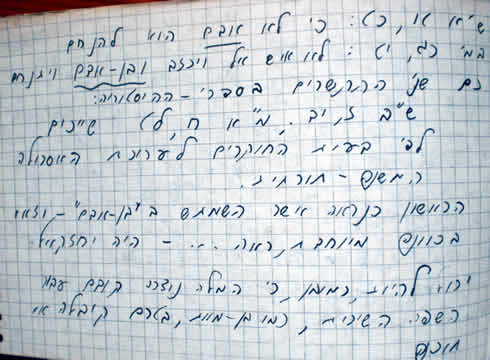 ש"א או, כט: כי לא אדם הוא להנחם
במ' כג, יט: לא איש אל ויכזב ובן-אדם ויתנחם
גם שני הקשרים בספרי-ההיסטוריה:
ש"ב ז, יב. מ"א ח, לט שייכים
לפי בעית החוקרים לערוכת האסכולה
המשנה-תורתית.
הראשון כנראה אשר השתמש ב"בן-אדם" - וזאת
בכוונה מיוחדת, ראה ... - היה יחזקאל.
יכול להיות, כמובן, כי המלה נוצרה קודם עבור
השפה השירית, כמו בן-מות, בטרם קיבלה את
תוכנה